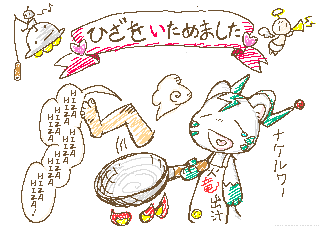 ひざをいためました
HIZA
HIZA
HIZA
HIZA
HIZA
HIZA
HIZA
HIZA
HIZA
HIZA!
ナケルワー
竜出汁